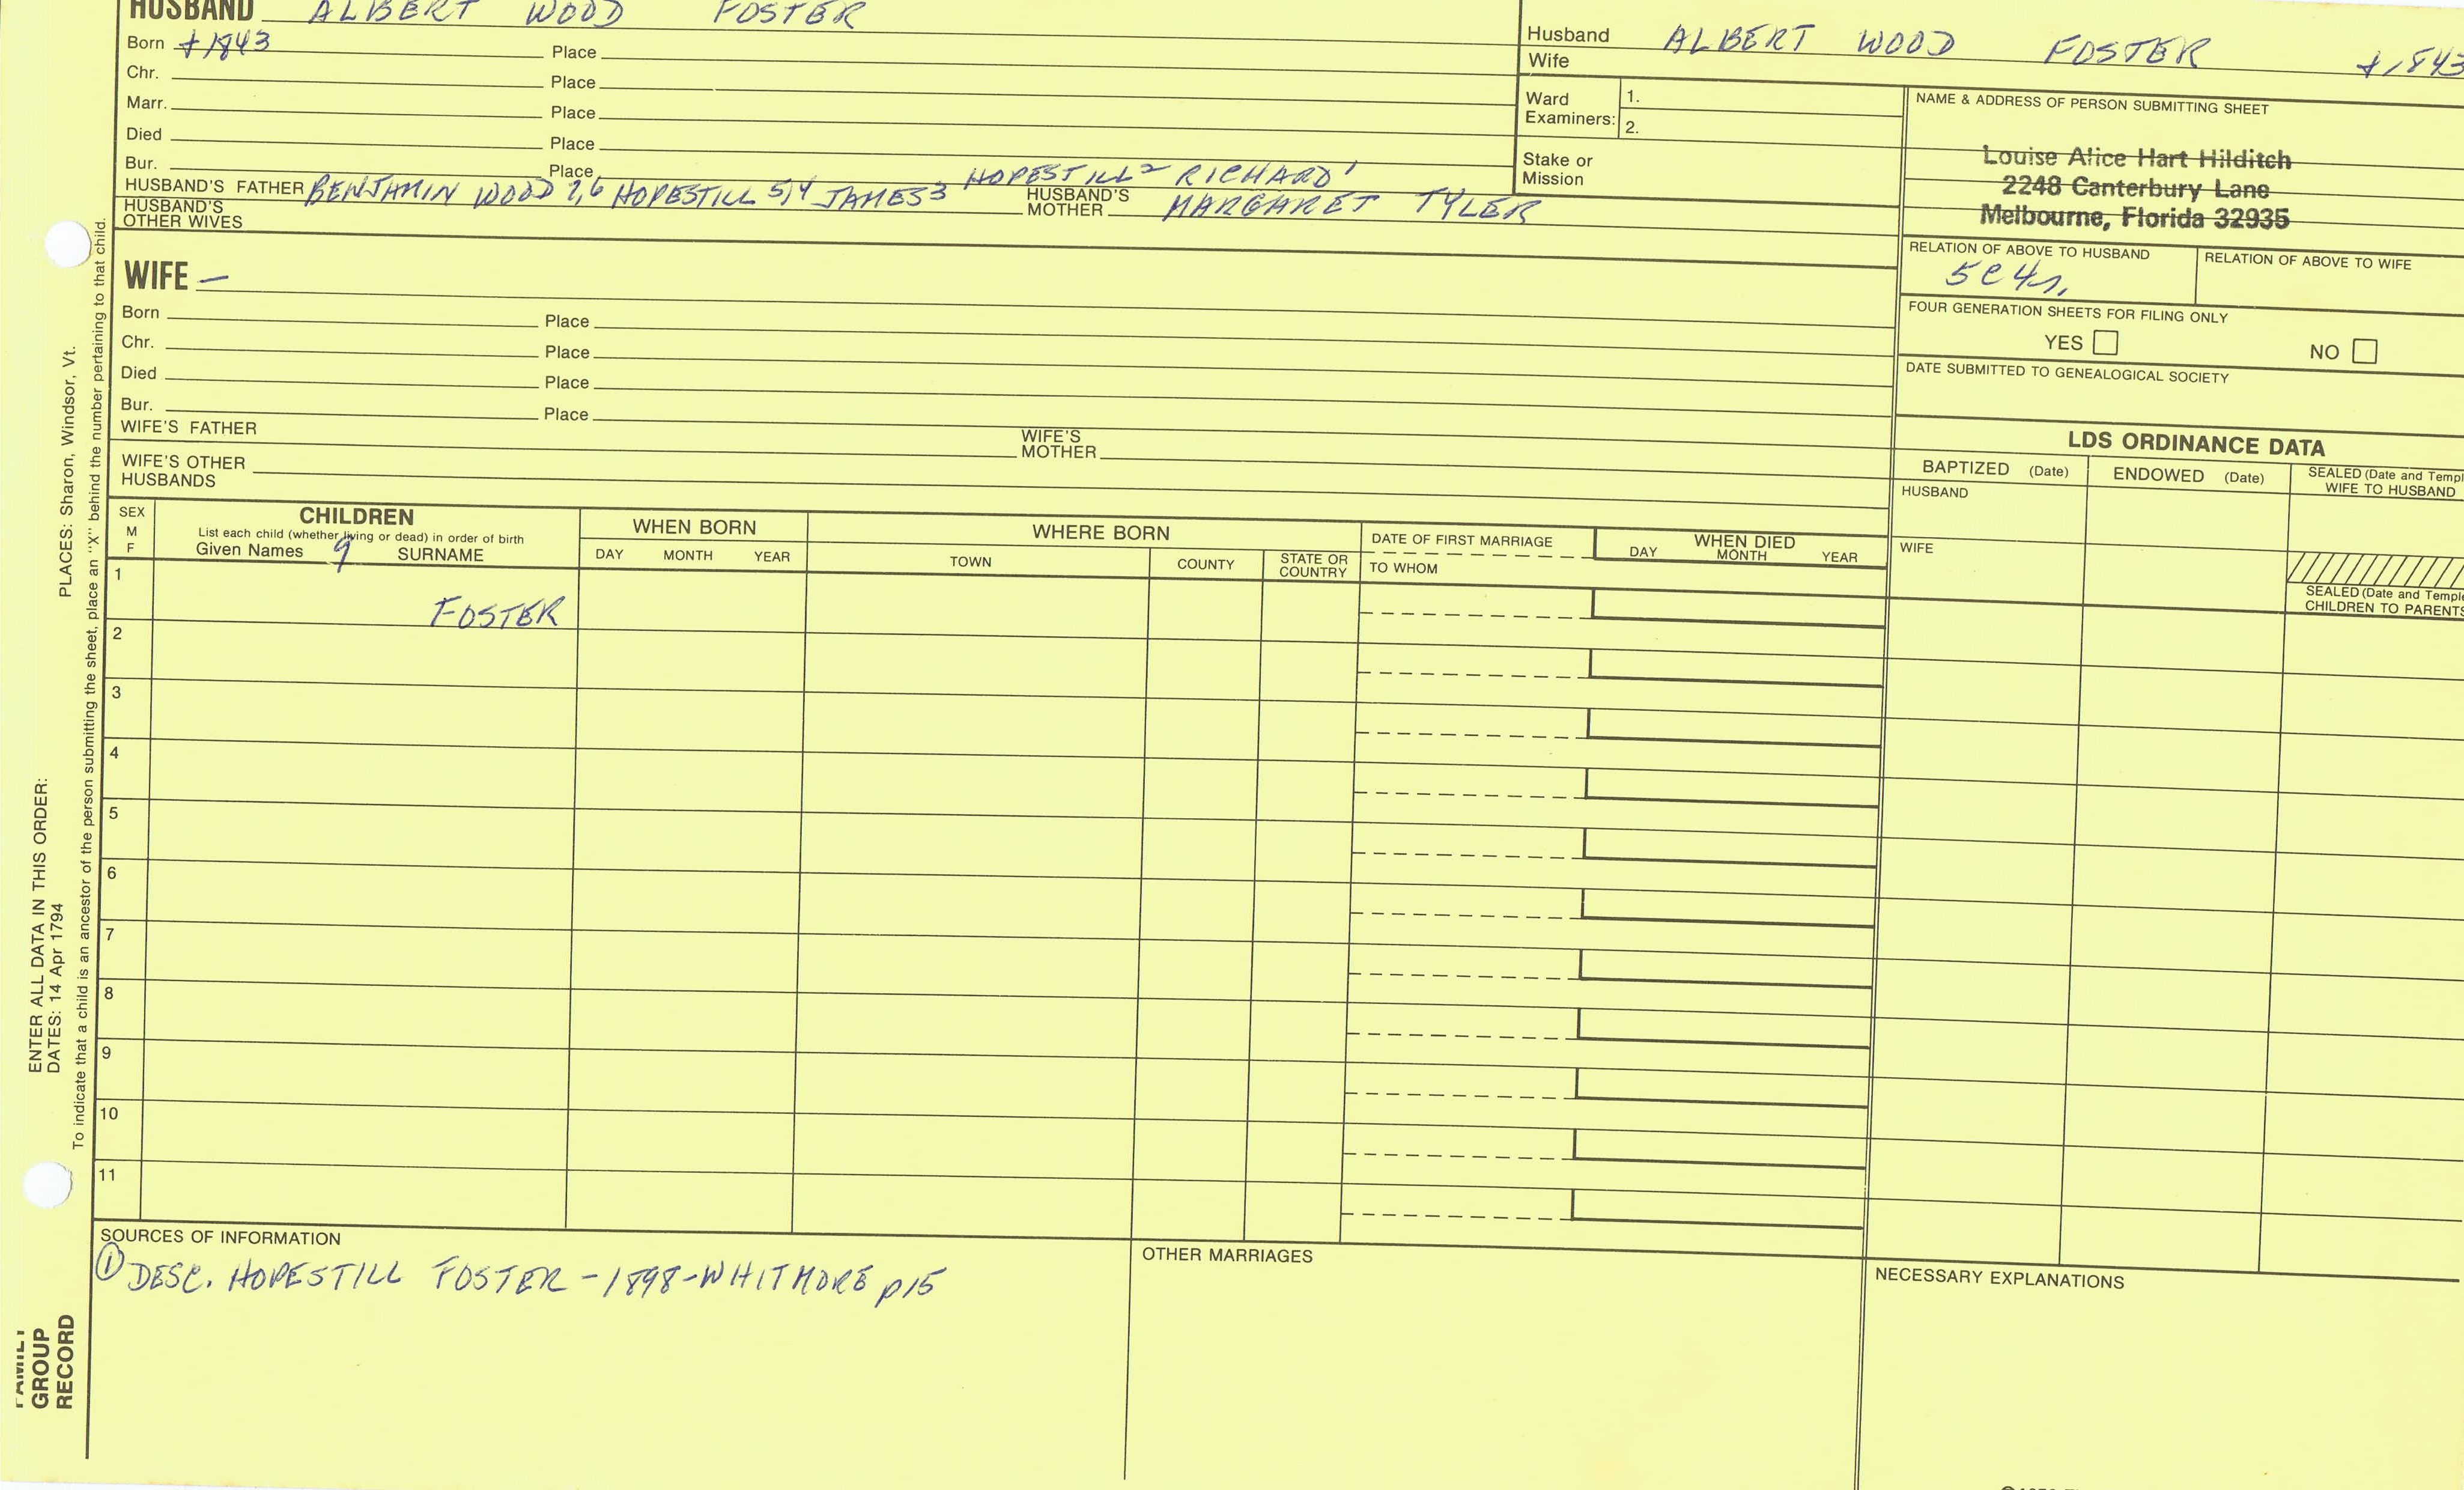 HUSBAND ALBERT WOOD FOSTER
Born +1843 Place
Chr. Place
Marr. Place
Died Place
Bur. Place
HUSBAND'S FATHER BENJAMIN WOOD 7,6 HOPESTILL 5,4 JAMES3 HOPESTILL2 RICHARD1 HUSBAND'S MOTHER MARGARET TYLER
HUSBAND'S OTHER WIVES
Husband ALBERT WOOD FOSTER +1843
Wife
Ward Examiners: 1.
2.
Stake or Mission
NAME & ADDRESS OF PERSON SUBMITTING SHEET
Louise Alice Hart Hilditch
2248 Canterbury Lane
Melbourne, Florida 32935
RELATION OF ABOVE TO HUSBAND RELATION OF ABOVE TO WIFE
5C4r.
FOUR GENERATION SHEETS FOR FILING ONLY
YES NO
DATE SUBMITTED TO GENEALOGICAL SOCIETY
WIFE –
Born Place
Chr. Place
Died Place
Bur. Place
WIFE'S FATHER WIFE'S MOTHER
WIFE'S OTHER HUSBANDS
LDS ORDINANCE DATA
BAPTIZED (Date) ENDOWED (Date) SEALED (Date and Templ
WIFE TO HUSBAND
HUSBAND
WIFE
SEALED (Date and Temple
CHILDREN TO PARENTS
SEX
M
F
CHILDREN
List each child (whether living or dead) in order of birth
Given Names 9 SURNAME
WHEN BORN
DAY MONTH YEAR
WHERE BORN
TOWN COUNTY STATE OR COUNTRY
DATE OF FIRST MARRIAGE
TO WHOM
WHEN DIED
DAY MONTH YEAR
1
FOSTER
2
3
4
5
6
7
8
9
10
11
SOURCES OF INFORMATION
① DESC. HOPESTILL FOSTER – 1898 – WHITMORE p15
OTHER MARRIAGES
NECESSARY EXPLANATIONS
ENTER ALL DATA IN THIS ORDER:
DATES: 14 Apr 1794 PLACES: Sharon, Windsor, Vt.
To indicate that a child is an ancestor of the person submitting the sheet, place an "X" behind the number pertaining to that child.
FAMILY
GROUP
RECORD